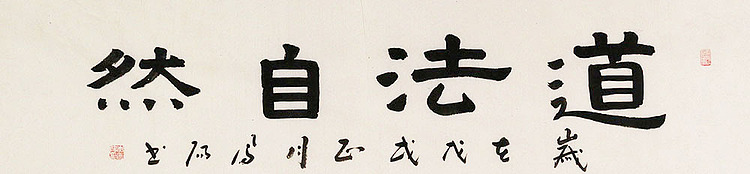 道法自然
歲在戊戌正月
书